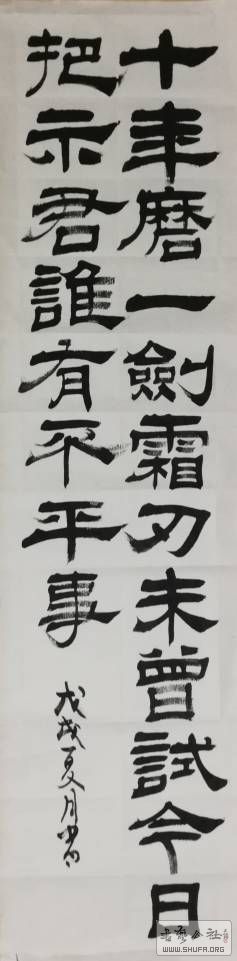 十年磨一劍霜刃未曾試今日
把示君誰有不平事
戊戌夏月
WWW.SHUFA.ORG